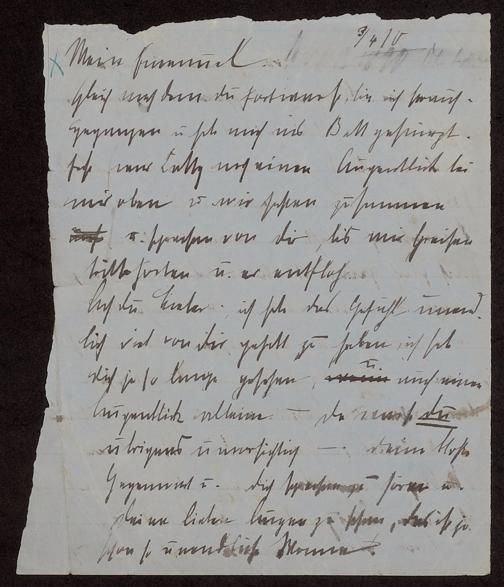 3/4/15
Mein Emanuel.
Gleich nachdem du fortwarst, bin ich
gegangen u. hab mich ins Bett gestürzt.
war noch einen Augenblick bei
mir oben u. wir sassen zusammen
u. sprachen von dir, bis wir
hörten u. er entfloh.
Ach du Lieber. ich hab das Gefühl unend-
lich viel von dir gehabt zu haben, ich hab
dich ja so lange gesehen, u. auch einen
Augenblick alleine — du warst du
übrigens unvorsichtig —. deine
Gegenwart u. dich sprechen zu hören u.
deine lieben Augen zu sehen, das ist ja
schon so unendliche Wonne